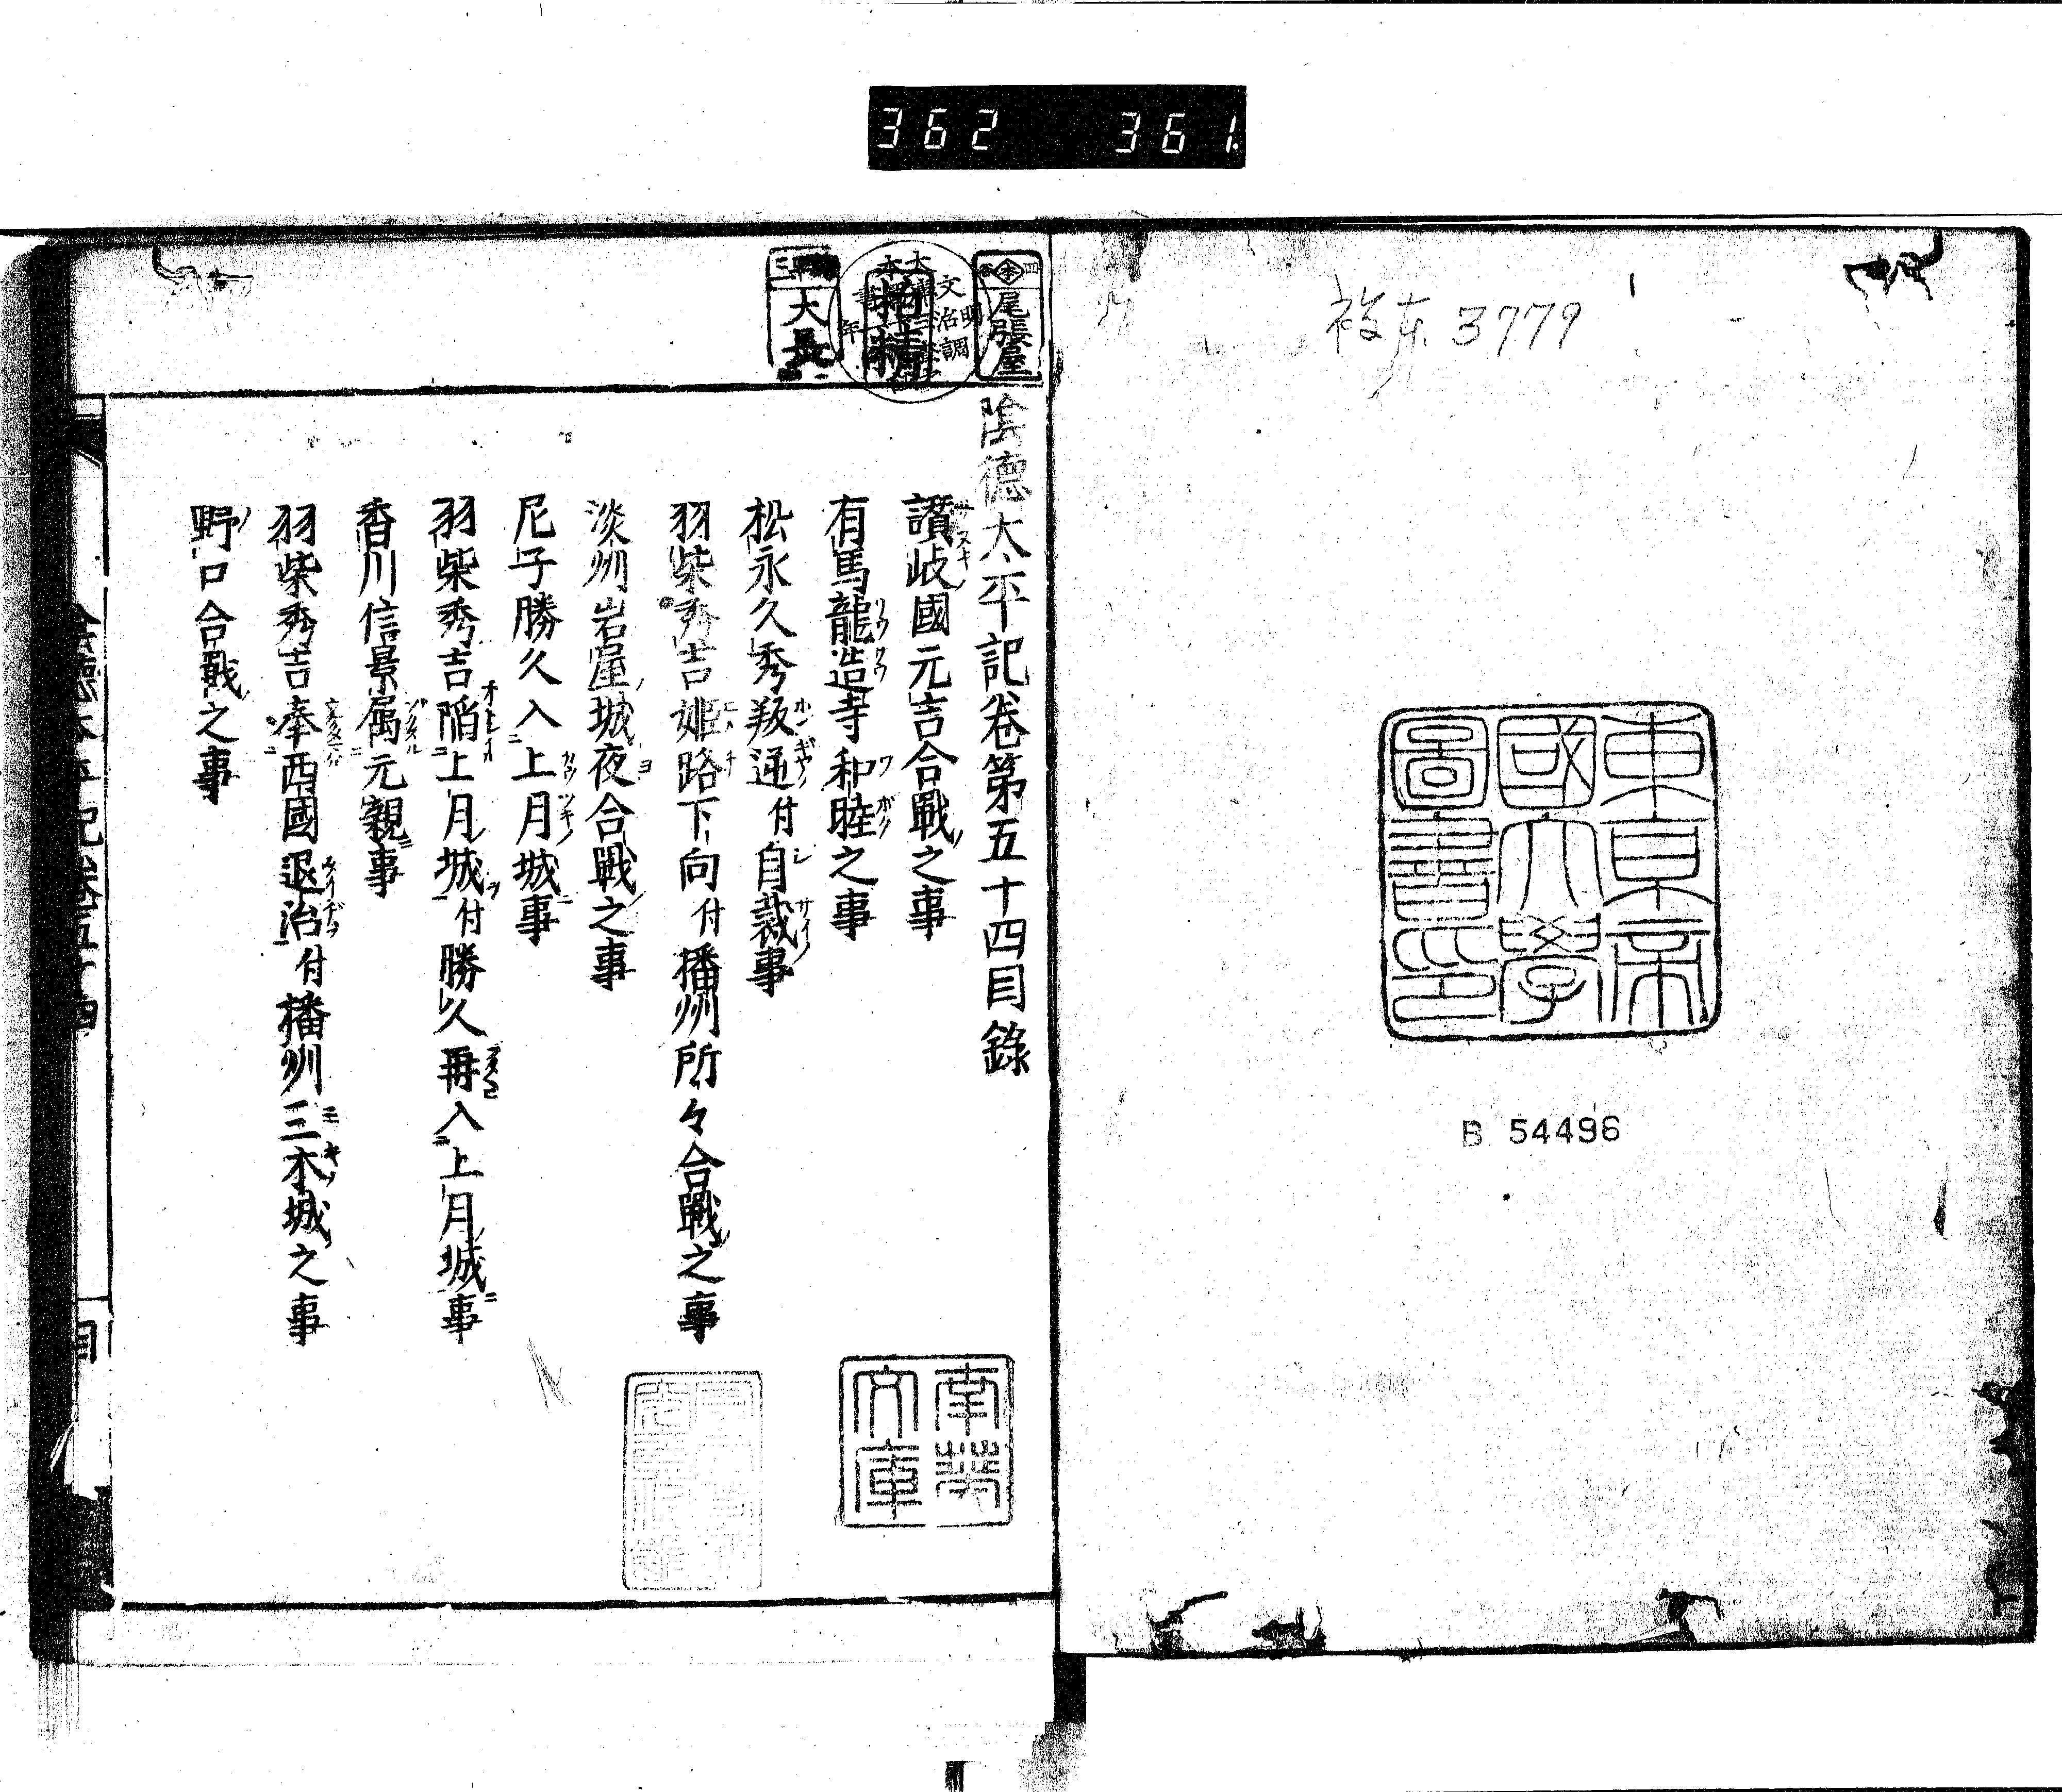 362 361.
複本 3779
東京帝
國大學
圖書印
B 54496
尾張屋
大長
陰德太平記卷第五十四目錄
讃岐國元吉合戰之事
有馬龍造寺和睦之事
松永久秀叛逆付自裁事
羽柴秀吉姬路下向付播州所々合戰之事
淡州岩屋城夜合戰之事
尼子勝久入上月城事
羽柴秀吉陷上月城付勝久再入上月城事
香川信景属元親事
羽柴秀吉奉西國退治付播州三木城之事
野口合戰之事
南葵
文庫